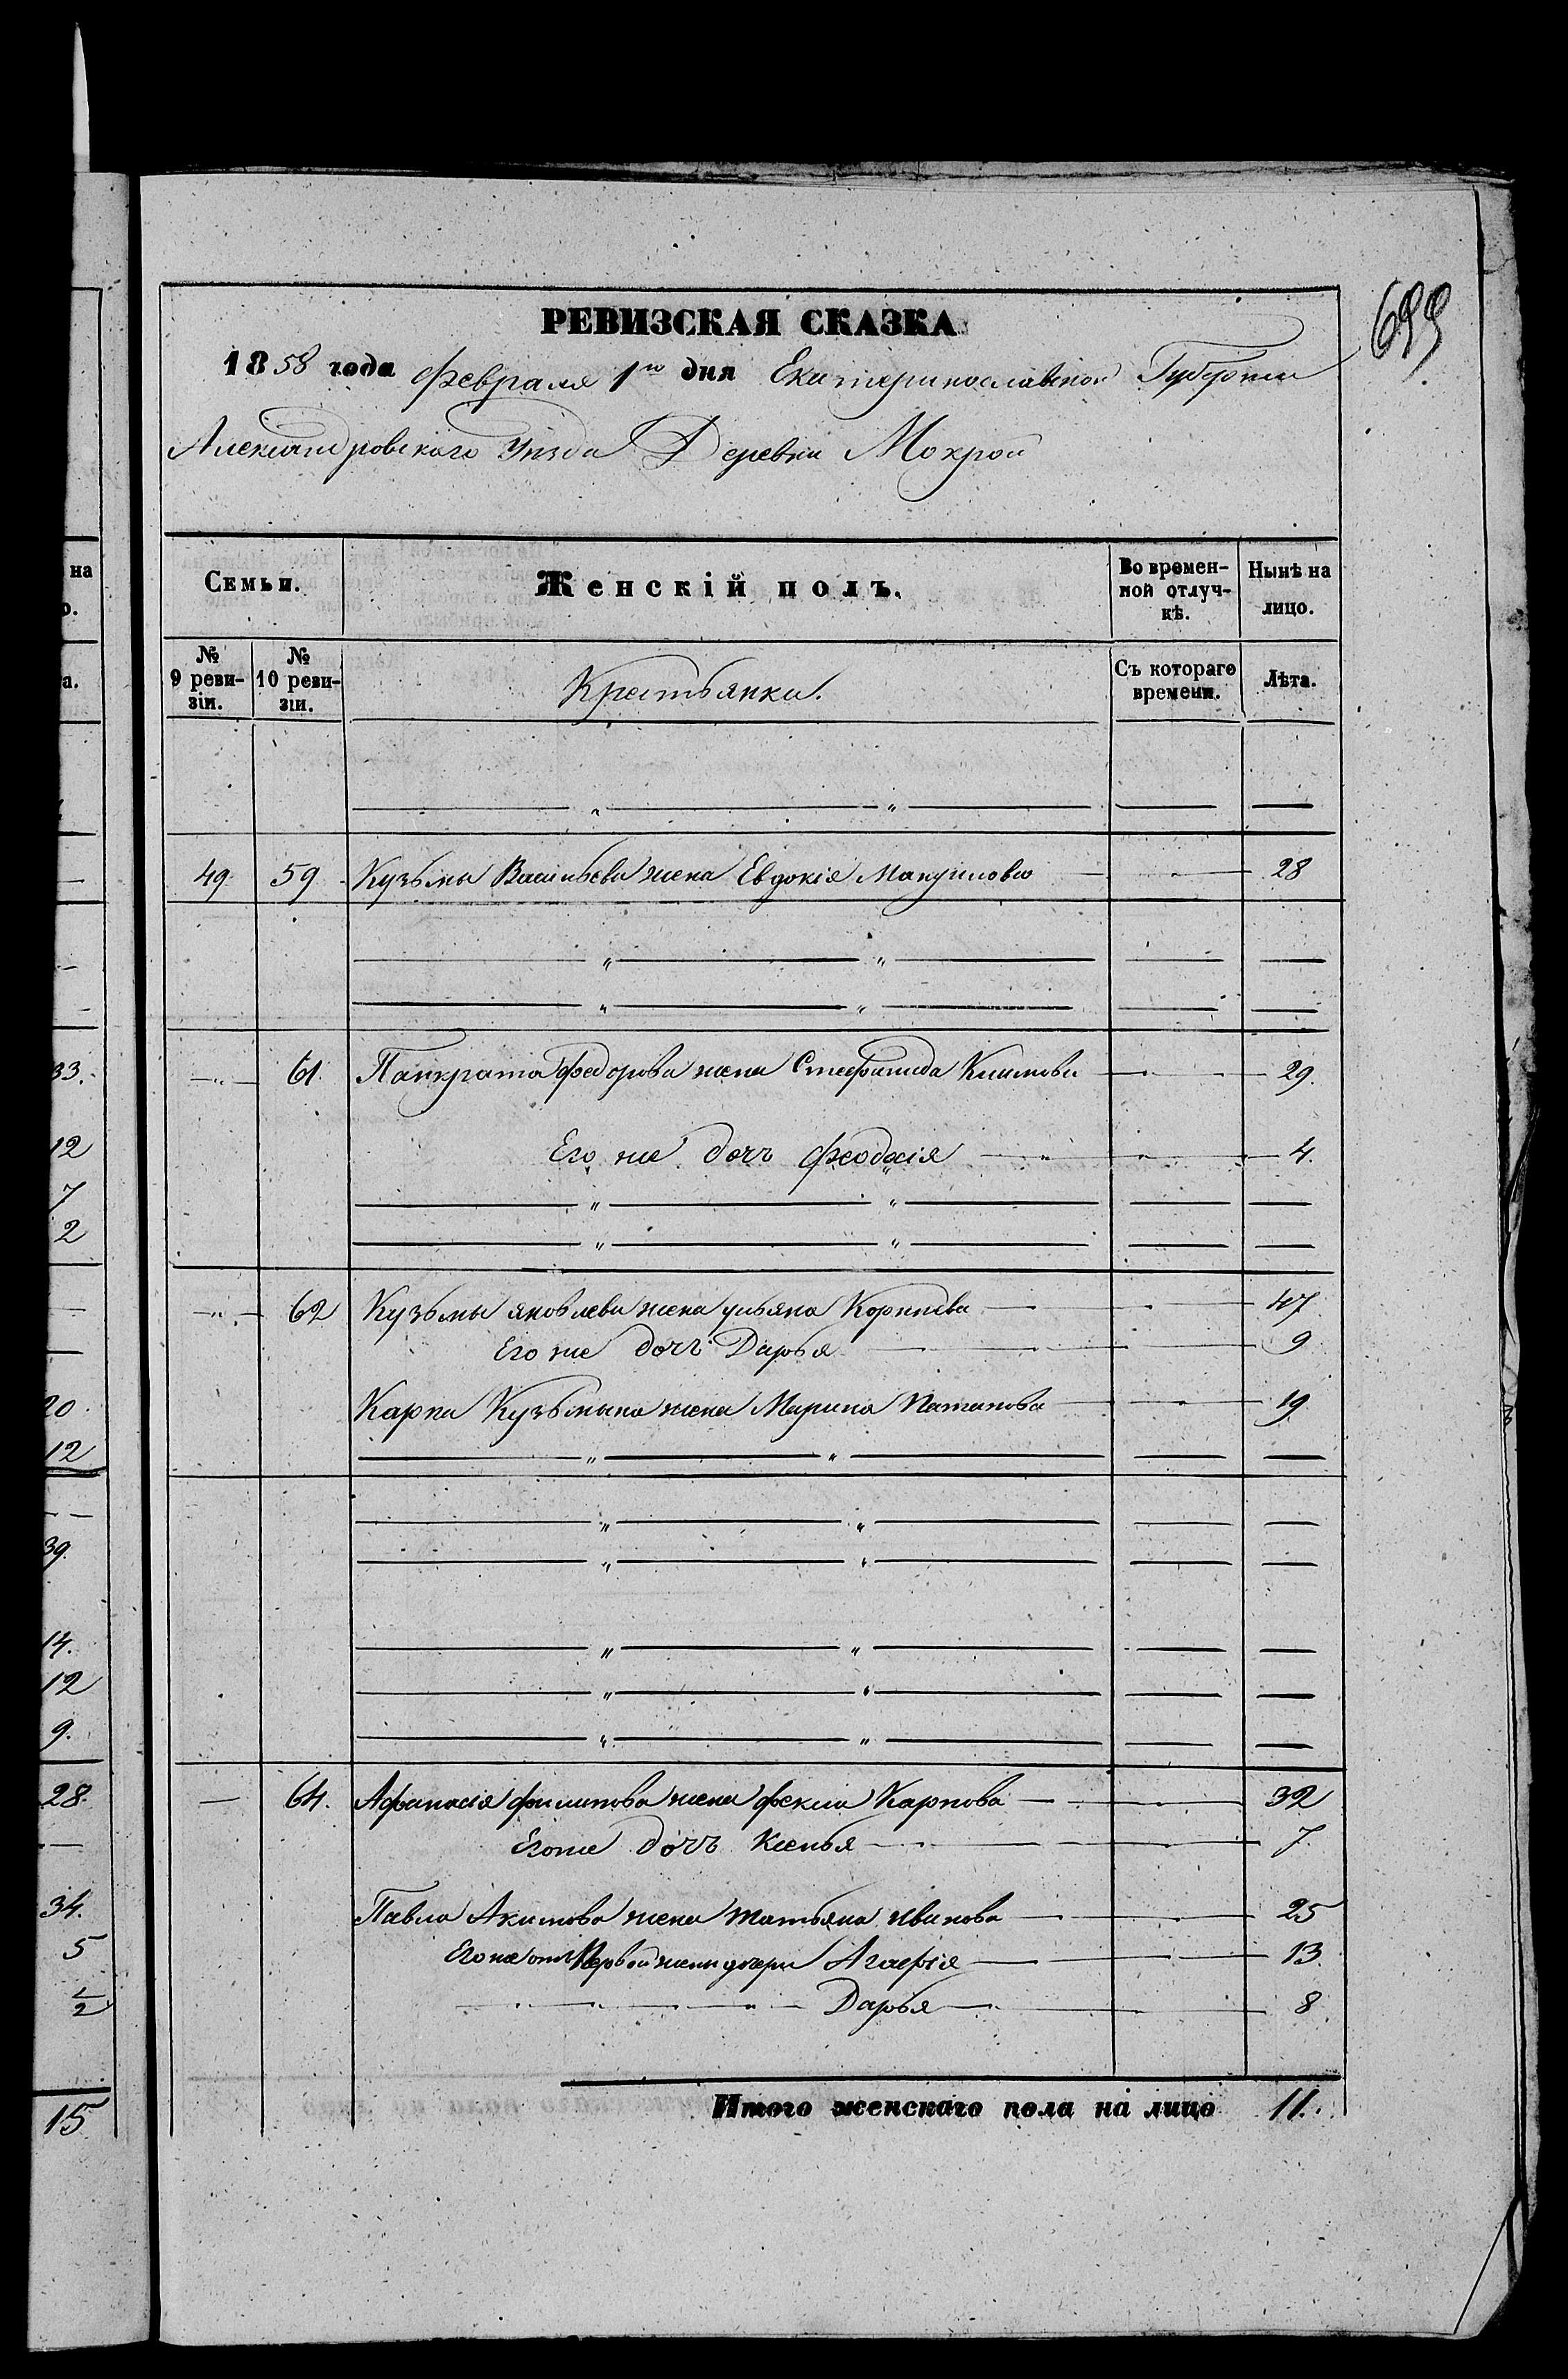 699
РЕВИЗСКАЯ СКАЗКА
1858 года февраля 1го дня Екатеринославской Губернии
Александровского Уѣзда Деревни Мокрой
Семьи. Женскій полъ. Во времен-ной отлуч-кѣ. Нынѣ на лицо.
№ 9 реви-зіи. № 10 реви-зіи. Крестьянки. Съ котораго времени. Лѣта.
49 59 Кузьмы Васильева жена Евдокія Мануилова 28
61. Панкрата Федорова жена Стефанида Климова 29.
Его же дочь Феодосія 4.
62 Кузьмы Яковлева жена Ульяна Корнѣева 47
Его же дочь Дарья 9
Карпа Кузьмына жена Марина Патапова 19
64. Афанасія Филипова жена Фекла Карпова 32
Его же дочь Ксенья 7.
Павла Акимова жена Татьяна Иванова 25
Его же отъ Первой жены дочери Агафія 13.
Дарья 8
Итого женскаго пола на лицо 11.
на
о.
а.
33.
12
7
2
20.
12
39.
14.
12
9.
28.
34.
5
½
15